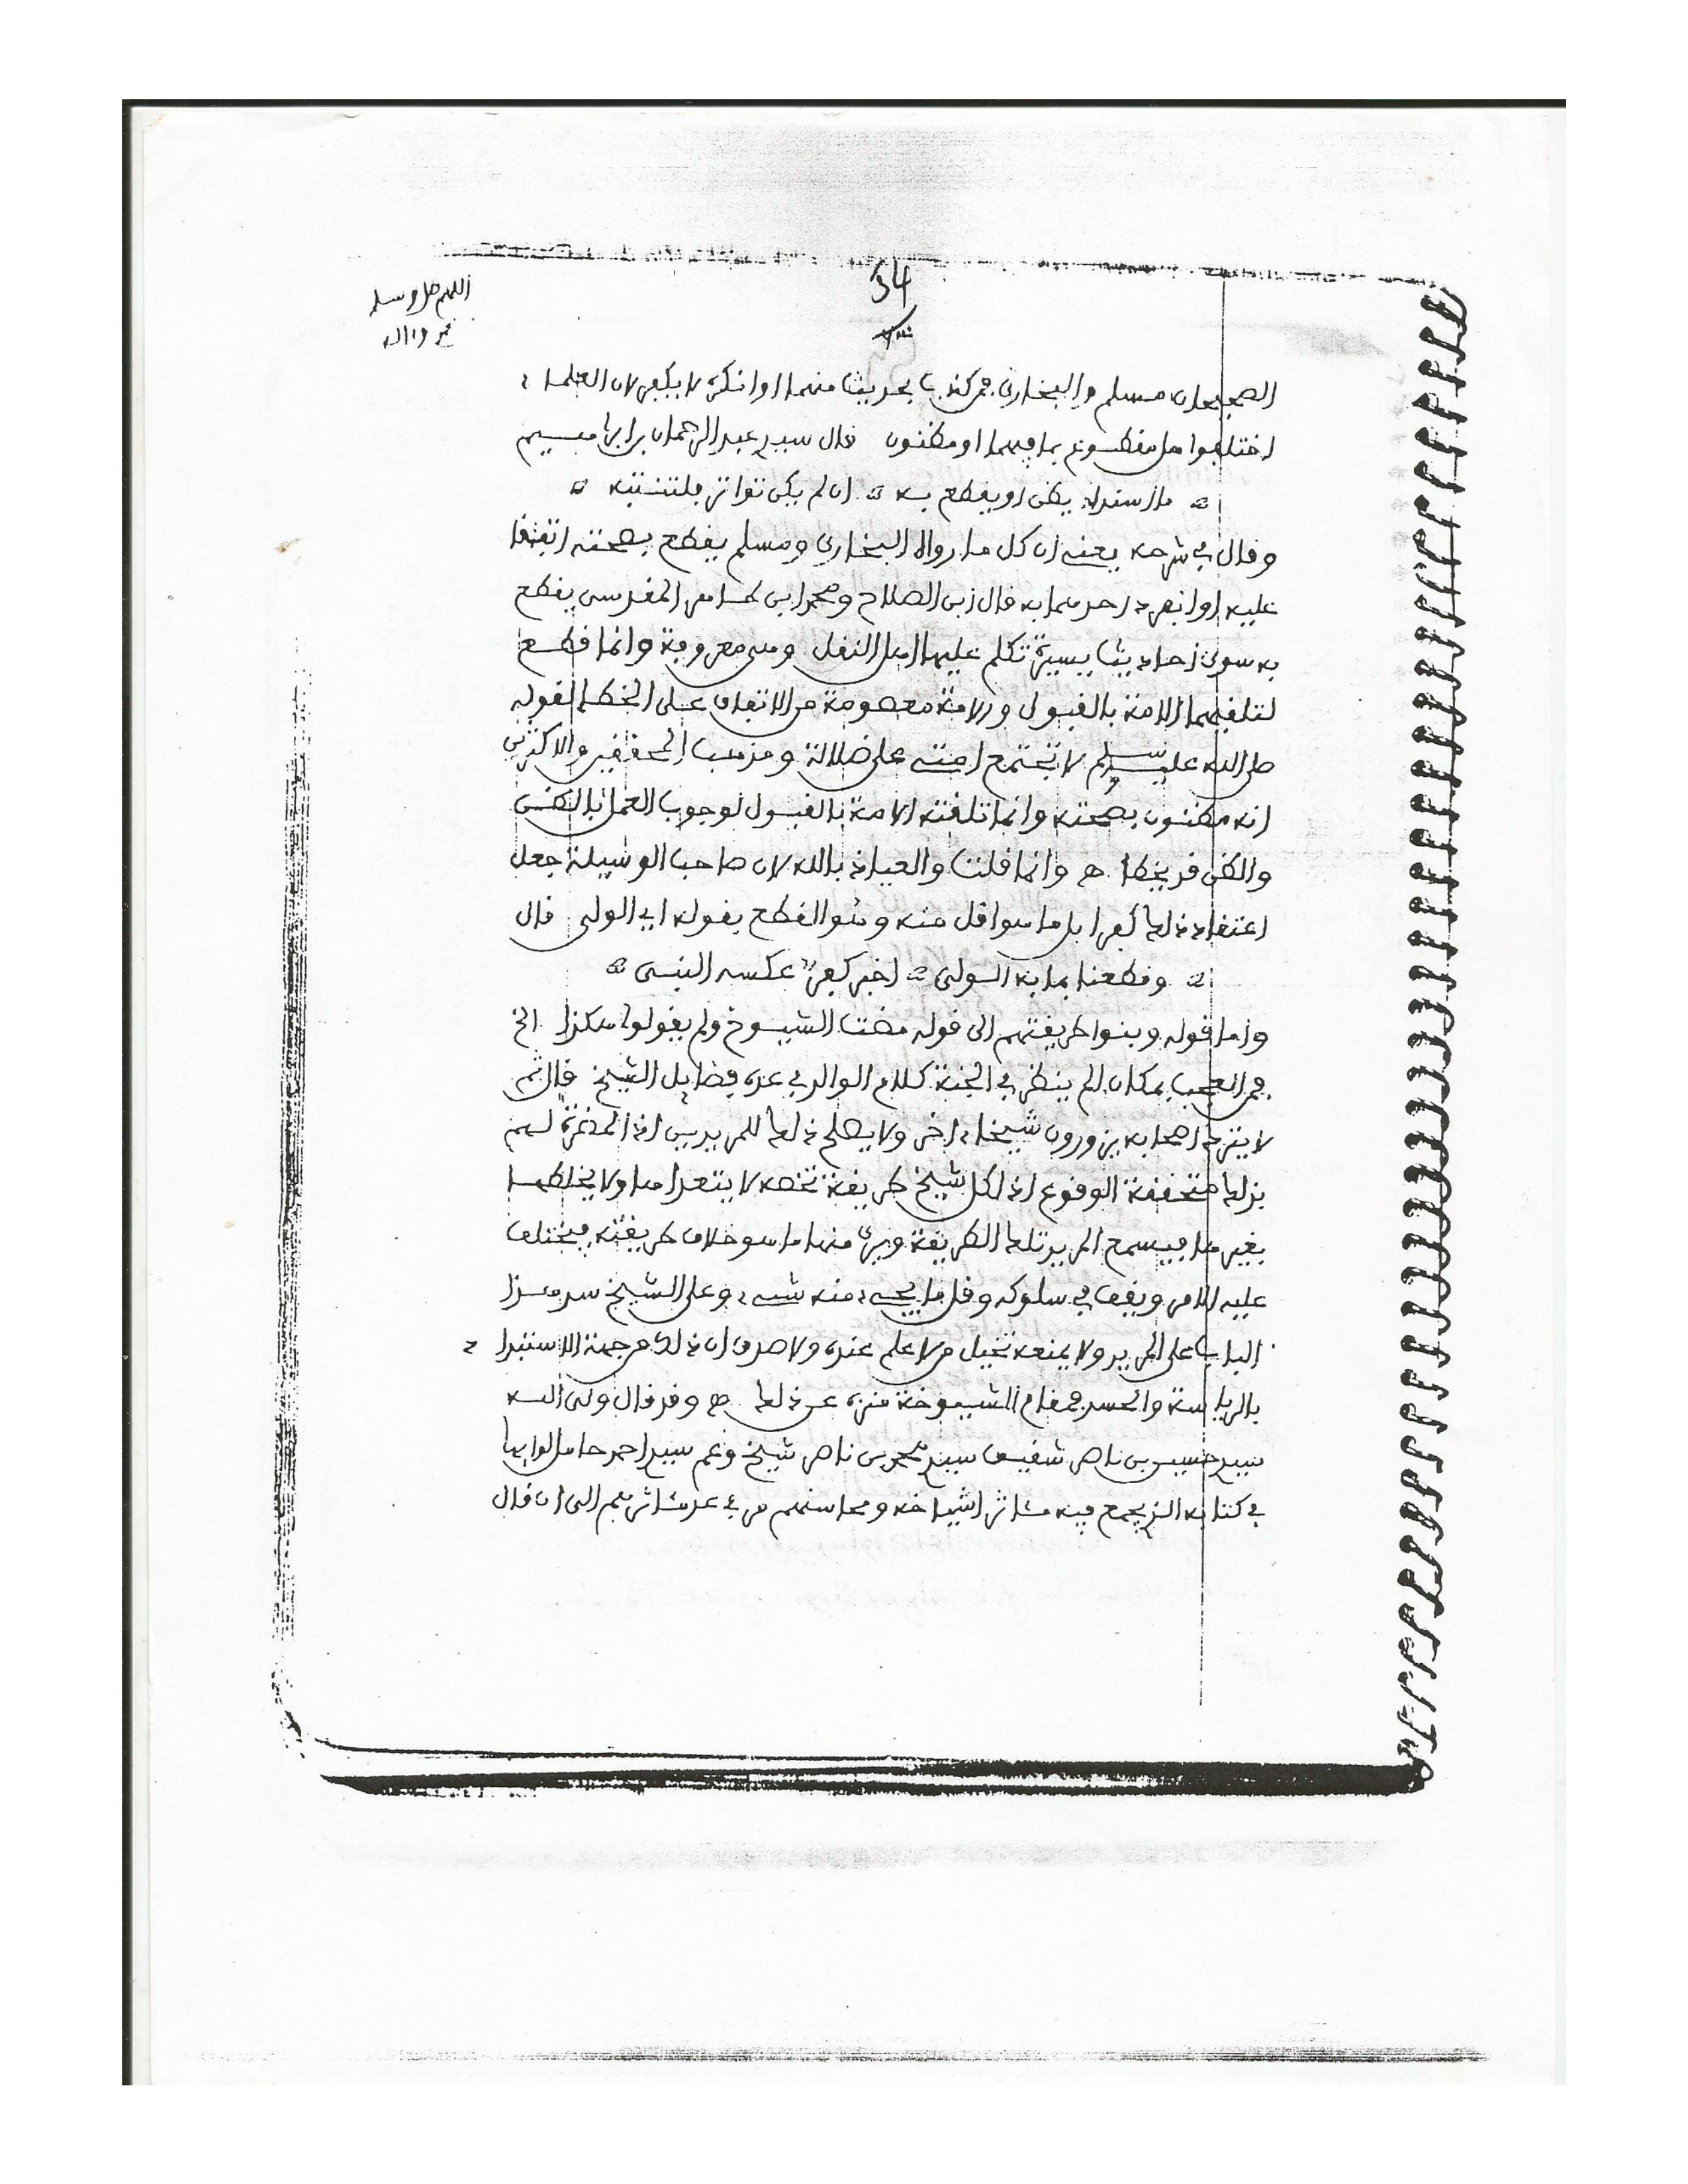 34
اللهم صل وسلم
الصحيحان مسلم والبخاري فمن كذب بحديث منهما او انكره لا يكفر لان العلماء
اختلفوا هل مقطوع بما فيهما او مظنون قال سيد عبد الرحمان بن ابراهيم
ما اسندا يظن او يقطع به ان لم يكن تواتر فلتنتبه
وقال في شرحه يعني ان كل ما رواه البخاري ومسلم يقطع بصحته اتفقا
عليه او انفرد احدهما به قال ابن الصلاح ومحمد ابن طاهر المقدسي يقطع
به سوى احاديث يسيرة تكلم عليها اهل النقل وهي معروفة وانما قطع
لتلقيهما الامة بالقبول والامة معصومة من الاتفاق على الخطا لقوله
صلى الله عليه وسلم لا تجتمع امتي على ضلالة ومذهب المحققين والاكثرين
انه مظنون بصحته وانما تلقته الامة بالقبول لوجوب العمل بالظن
والظن قد يخطئ ه وانما قلنا والعياذ بالله لان صاحب الوسيلة جعل
اعتقاد ذلك كفرا بل ما هو اقل منه وهو القطع بقوله اي الولي قال
وقطعنا بما به الولي اخبر كفر عكسه النبي
واما قوله وبنوا طريقتهم الى قوله مضت الشيوخ ولم يقولوا هكذا الخ
فمن العجب بمكان الم ينظر في الجنة كلام الوالد في عده فضايل الشيخ قال ثم
لا يترك اصحابه يزورون شيخا اخر ولا يصلح ذلك للمريدين اذ المضرة لهم
بذلك متحققة الوقوع اذ لكل شيخ طريقة تخصه لا يتعداها ولا يخلطها
بغيرها فيسمع المريد تلك الطريقة ويرى منها ما هو خلاف طريقته فيختلف
عليه الامر ويقف في سلوكه وقل ما يجيء منه شيء وعلى الشيخ سد هذا
الباب على المريد ولا يمنعه تخيل من لا علم عنده ولا صدق ان ذلك من جهة الاستبداد
بالرياسة والحسد فمقام الشيوخة منزه عن ذلك ه وقد قال ولي الله
سيد حسين بن ناصر شقيق سيد محمد بن ناصر شيخ وعم سيد احمد حامل لوايها
في كتابه الذي جمع فيه مئاثر اشياخه ومحاسنهم من في عد مئاثرهم الى ان قال